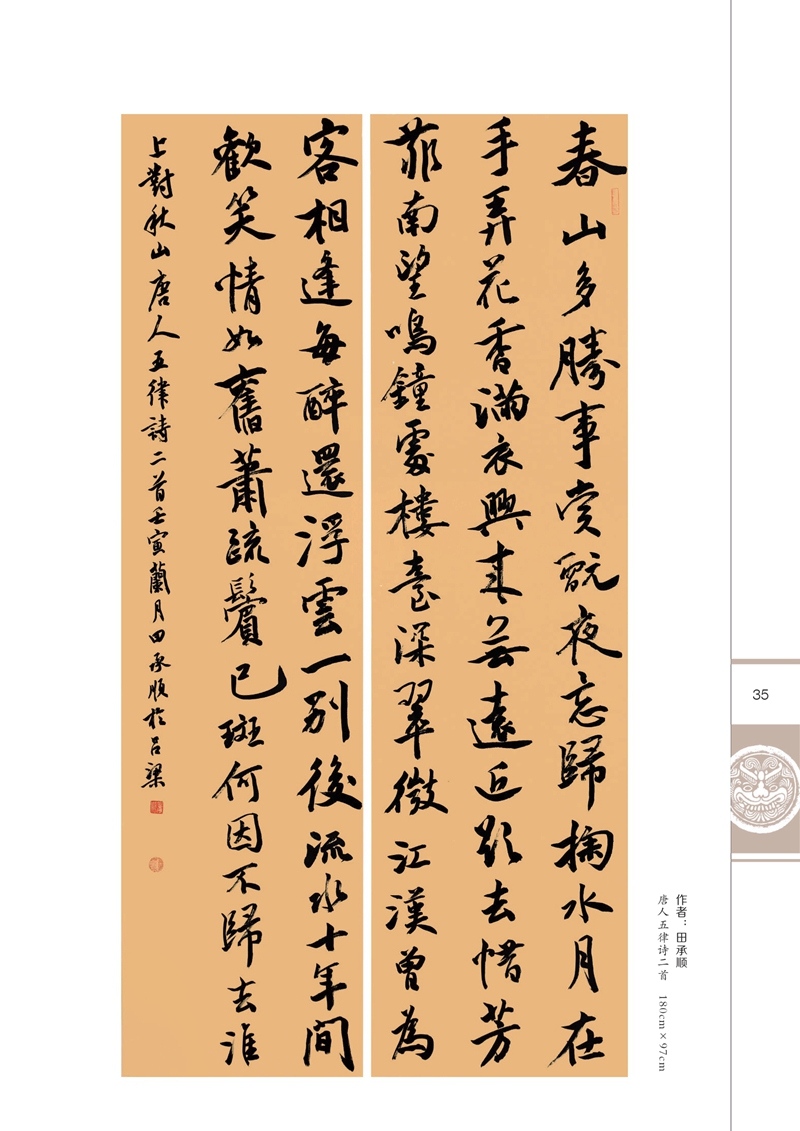 春山多勝事赏翫夜忘歸掬水月在
手弄花香滿衣興来無遠近欲去惜芳
菲南望鳴鐘處樓臺深翠微江漢曾為
客相逢每醉還浮雲一别後流水十年間
歡笑情如舊蕭疏鬢已斑何因不歸去淮
上對秋山唐人五律詩二首壬寅蘭月田承順於吕梁
作者：田承顺
唐人五律诗二首 180cm×97cm
35